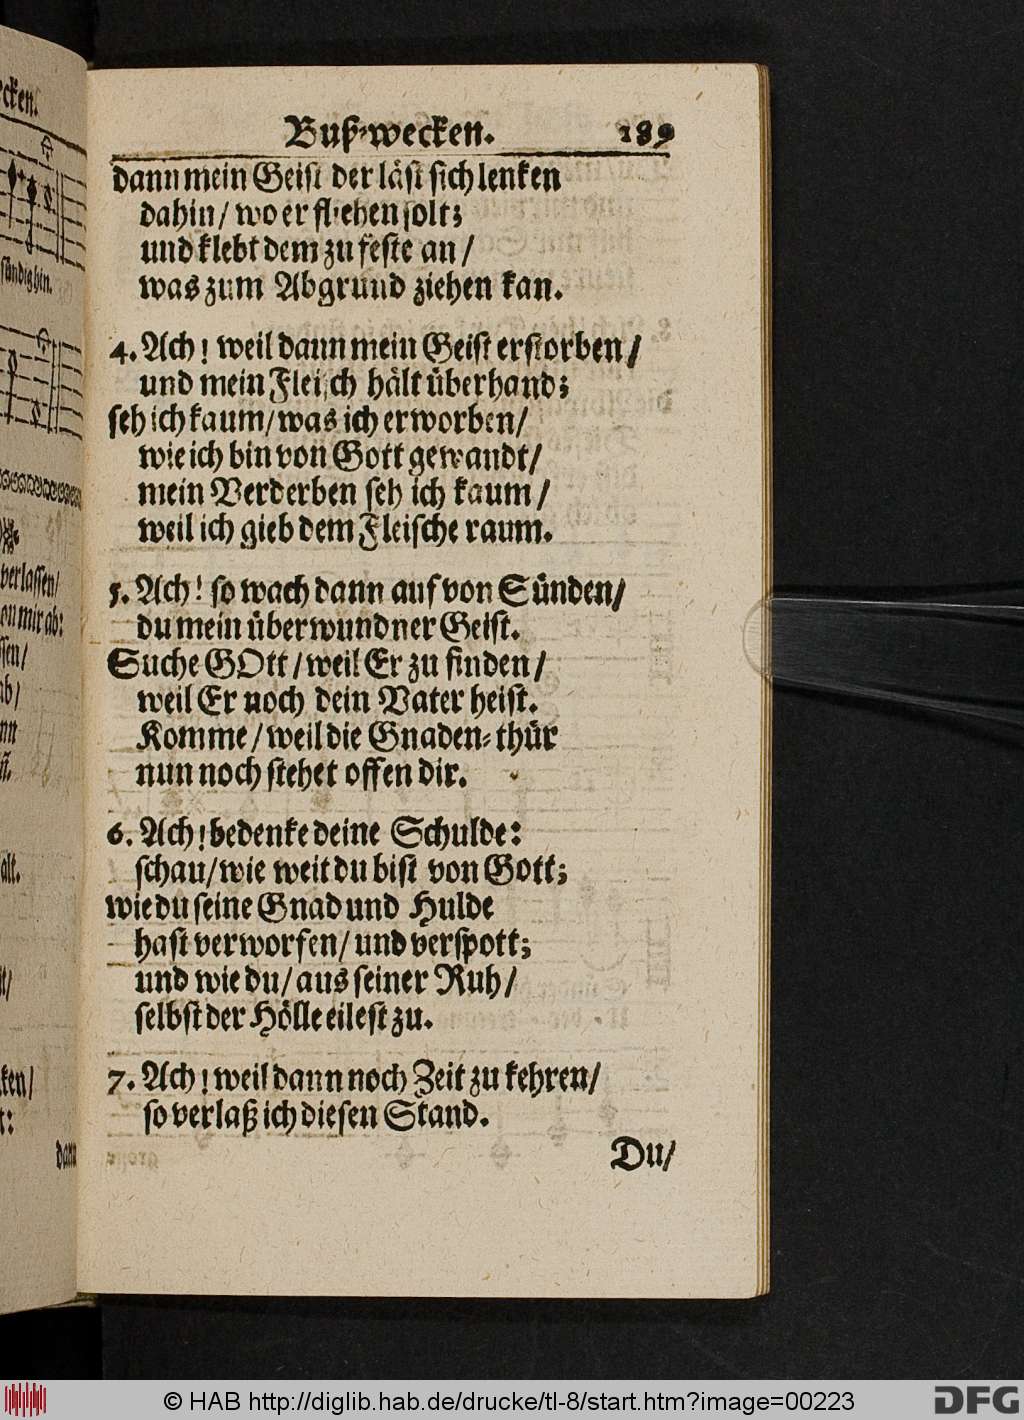 cken.
ständig hin.
verlassen/
von mir ab:
ssen/
ab/
nn
alt.
t/
ken/
t:
dann
Buß-wecken. 189
dann mein Geist der läst sich lenken
dahin/ wo er fliehen solt;
und klebt dem zu feste an/
was zum Abgrund ziehen kan.
4. Ach! weil dann mein Geist erstorben/
und mein Fleisch hält überhand;
seh ich kaum/ was ich erworben/
wie ich bin von Gott gewandt/
mein Verderben seh ich kaum/
weil ich gieb dem Fleische raum.
5. Ach! so wach dann auf von Sünden/
du mein überwundner Geist.
Suche GOtt/ weil Er zu finden/
weil Er noch dein Vater heist.
Komme/ weil die Gnaden-thür
nun noch stehet offen dir.
6. Ach! bedenke deine Schulde:
schau/ wie weit du bist von Gott;
wie du seine Gnad und Hulde
hast verworfen/ und verspott;
und wie du/ aus seiner Ruh/
selbst der Hölle eilest zu.
7. Ach! weil dann noch Zeit zu kehren/
so verlaß ich diesen Stand.
Du/
© HAB http://diglib.hab.de/drucke/tl-8/start.htm?image=00223
DFG